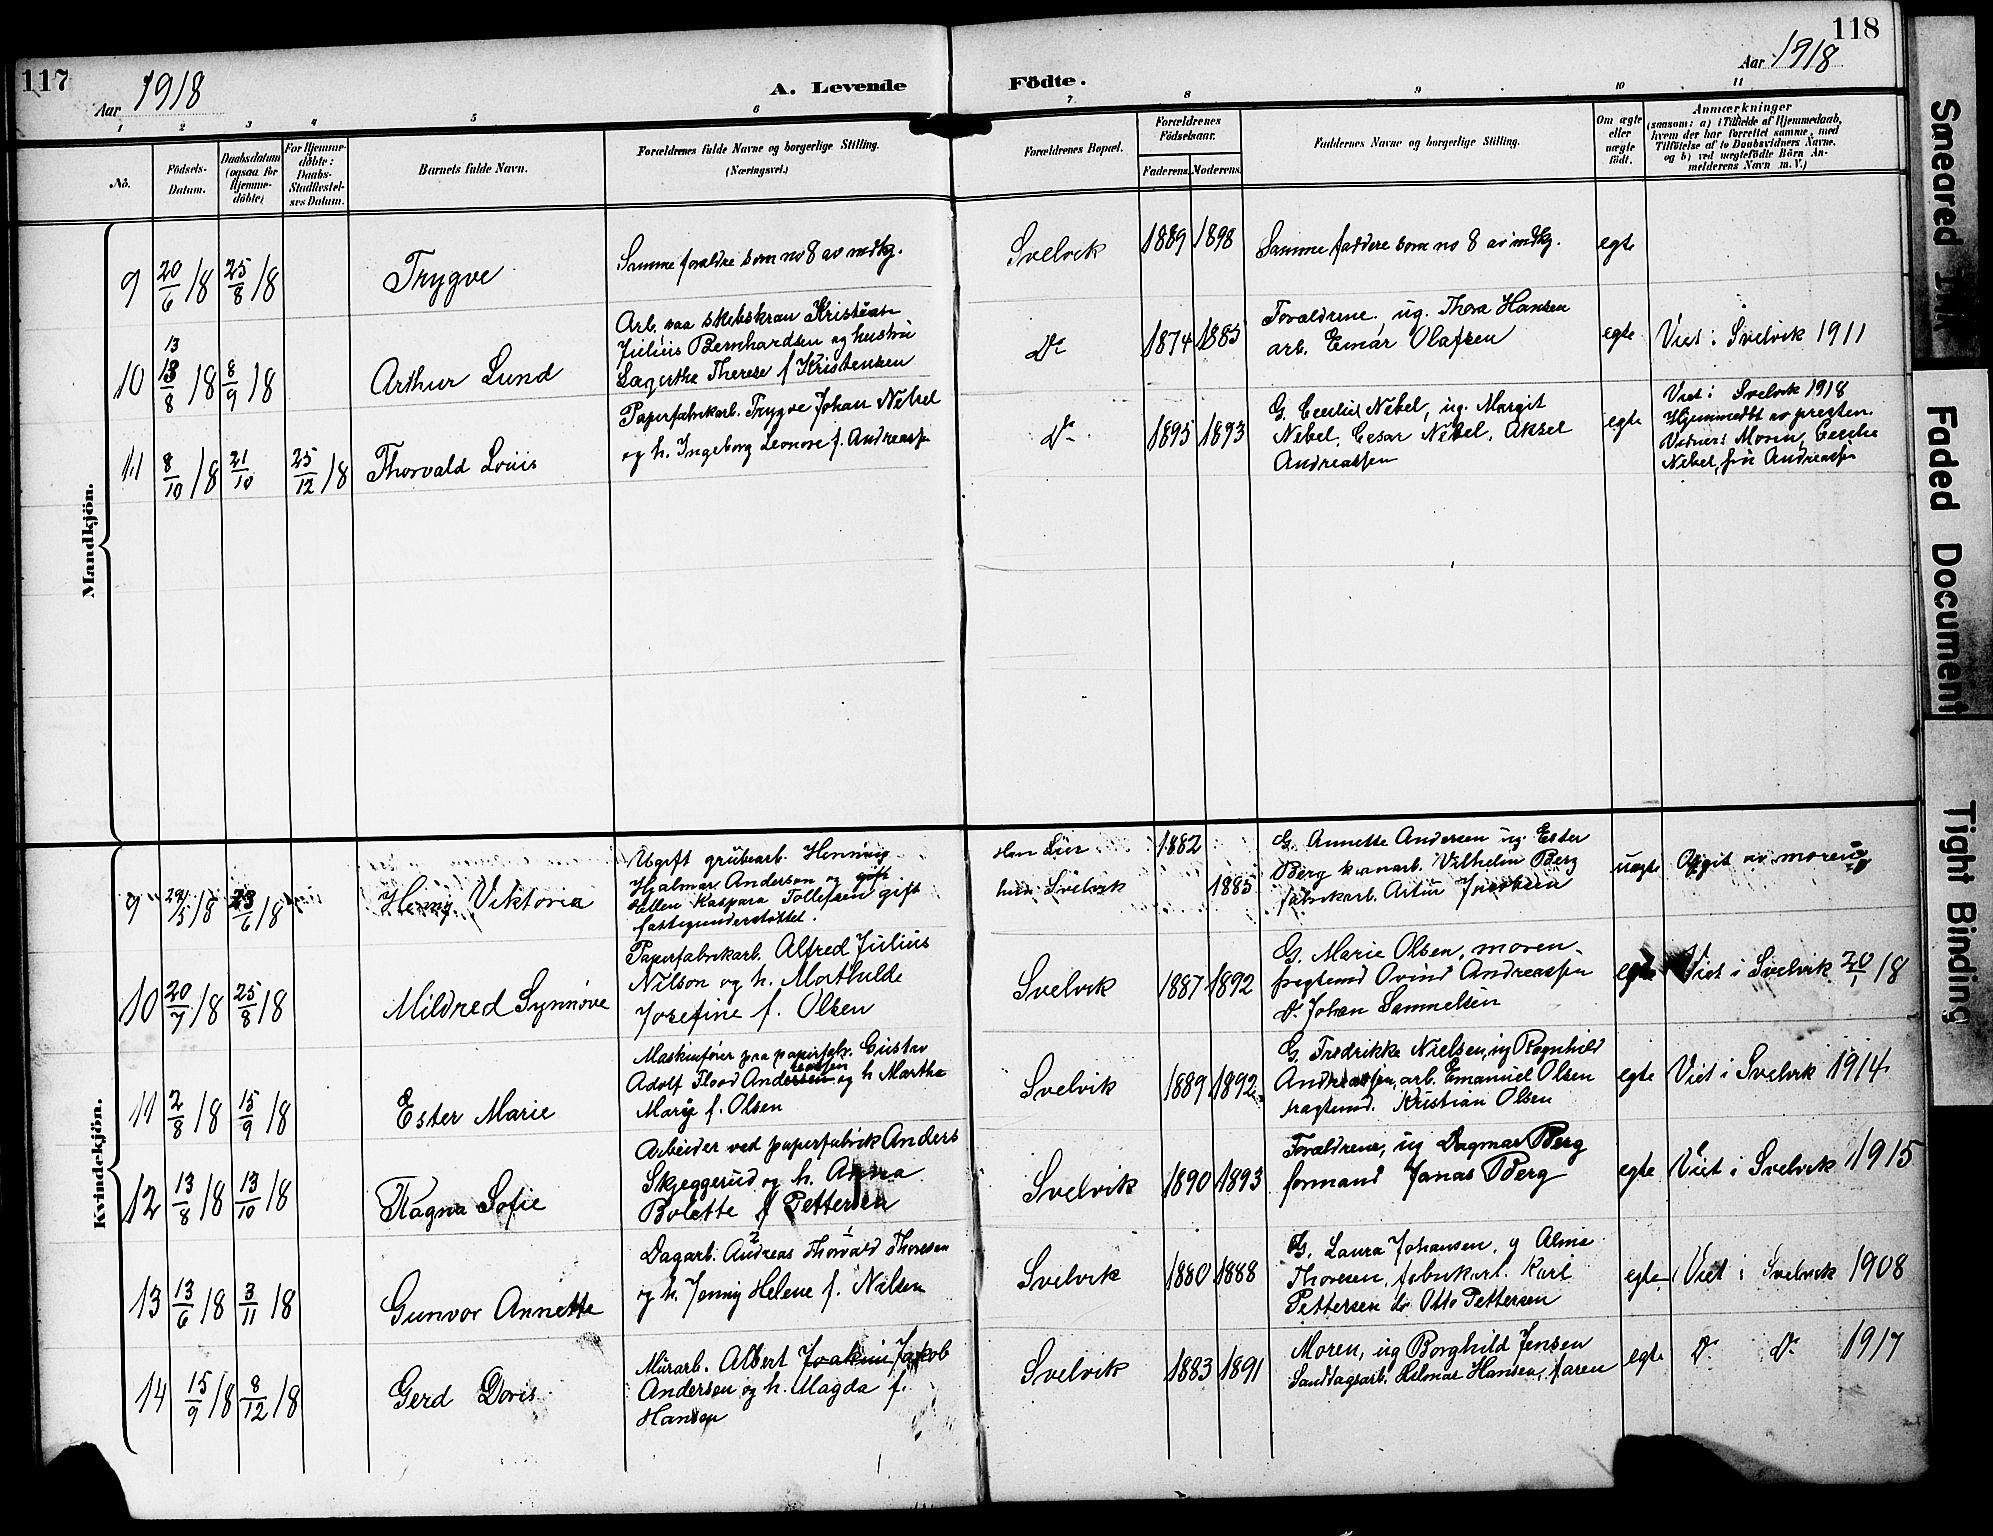 117
Aar 1918
A. Levende
Födte.
Aar 1918
118
1 2 3 4 5 6 7 8 9 10 11
No.
Födsels-
Datum.
Daabsdatum
(ogsaa for
Hjemme-
döbte)
For Hjemme-
döbte:
Daabs-
Stadfæstel-
ses Datum.
Barnets fulde Navn.
Forældrenes fulde Navne og borgerlige Stilling.
(Næringsvei.)
Forældrenes Bopæl.
Forældrenes
Födselsaar.
Faderens. Moderens.
Faddernes Navne og borgerlige Stilling.
Om ægte
eller
uægte
födt.
Anmærkninger
(saasom: a) i Tilfælde af Hjemmedaab,
hvem der har forrettet samme, med
Tilföielse af to Daabsvidners Navne,
og b) ved uægtefödte Börn An-
melderens Navn m. V.)
Mandkjön.
9 20/6 18 25/8 18 Trygve
Samme foraldre som no 8 av mdkj.
Svelvik 1889 1898
Samme faddere som no 8 av mdkj.
egte
10 13 13/8 18 8/9 18 Arthur Lund
Arb. paa skibskran Kristian
Julius Bernhardsen og hustru
Lagertha Therese f Kristensen
Do 1874 1885
Foraldrene. ug. Thora Hansen
arb. Einar Olafsen
egte
Viet i Svelvik 1911
11 8/10 18 21/10 25/12 18 Thorvald Louis
Papirfabrikarb. Trygve Johan Nebel
og h. Ingeborg Leonore f. Andreassen
Do 1895 1893
G. Cecilie Nebel, ug. Margit
Nebel, Cesar Nebel, Aksel
Andreassen
egte
Viet i Svelvik 1918
Hjemmedbt av presten.
Vidner: Moren, Cecilie
Nebel, fru Andreassen
Kvindekjön.
9 29/5 18 23/6 18 Henny Viktoria
Ugift grubearb. Henning
Hjalmar Andersen og gift
Ellen Kaspara Tollefsen gift
fattigunderstøttet.
Han Lier
hun Svelvik
1882
1885
G. Annette Andersen ug. Ester
Berg kranarb. Vilhelm Berg
fabrikarb. Artur Jacobsen
uegte
Opgit av moren
10 20/7 18 25/8 18 Mildred Synnöve
Papirfabrikarb. Alfred Julius
Nilson og h. Morthilde
Josefine f. Olsen
Svelvik 1887 1892
G. Marie Olsen, moren
fragtemd Ovind Andreassen
Do Johan Samuelsen
egte
Viet i Svelvik 20/1 18
11 2/8 18 15/9 18 Ester Marie
Maskinfører paa papirfabr. Gustav
Adolf Flood Andersen og h Martha
Marie f. Olsen
Svelvik 1889 1892
G. Fredrikke Nielsen, ug Ragnhild
Andreassen, arb. Emanuel Olsen
fragtemd. Kristian Olsen
egte
Viet i Svelvik 1914
12 13/8 18 13/10 18 Ragna Sofie
Arbeider ved papirfabrik Anders
Skjeggerud og h. Anna
Bolette f Pettersen
Svelvik 1890 1893
Foraldrene, ug Dagmar Berg
formand Jonas Berg
egte
Viet i Svelvik 1915
13 13/6 18 3/11 18 Gunvor Annette
2 1
Dagarb. Andreas Thorvald Thoresen
og h. Jenny Helene f. Nielsen
Svelvik 1880 1888
G. Laura Johansen, g Alma
Thoresen, fabrikarb. Karl
Pettersen do Otto Pettersen
egte
Viet i Svelvik 1908
14 15/9 18 8/12 18 Gerd Doris
Murarb. Albert Joakim Jakob
Andersen og h. Magda f.
Hansen
Svelvik 1883 1891
Moren, ug Borghild Jensen
Sanddagsarb. Hilmar Hansen, faren
egte
Do Do 1917
Smeared Ink
Faded Document
Tight Binding